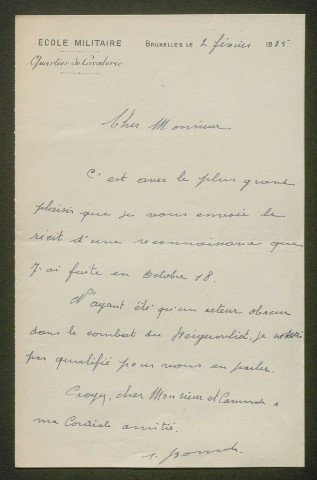 ECOLE MILITAIRE
Quartier de Cavalerie
BRUXELLES LE 2 février 1935
Cher Monsieur
C'est avec le plus grand
plaisir que je vous envoie le
récit d'une reconnaissance que
j'ai faite en Octobre 18.
N'ayant été qu'un acteur obscur
dans le combat du je
pas qualifié pour vous en parler.
Croyez, cher Monsieur et Camarade à
ma Cordiale amitié.